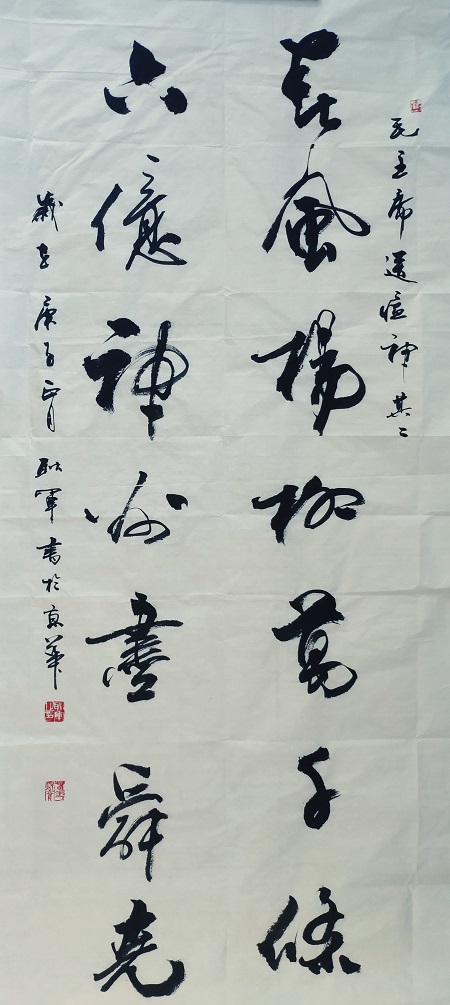 毛主席送瘟神其二
春風楊柳萬千條
六億神州盡舜堯
歲在庚子正月耿軍書於京華